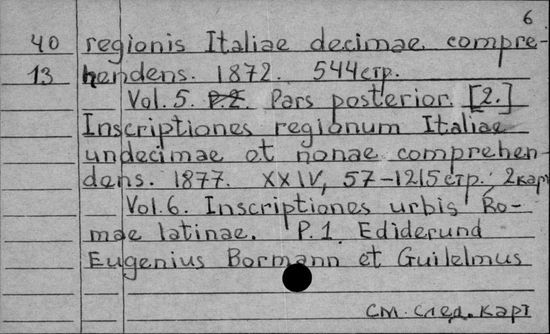 6
40 regionis Italiae decimae compre-
13 hendens. 1872. 544стр.
Vol. 5. P.2. Pars posterior. [2.]
Inscriptiones regionum Italiae
undecimae et nonae comprehen-
dens. 1877. XXIV, 57-1215стр.; 2карт
Vol. 6. Inscriptiones urbis Ro-
mae latinae. P.1. Ediderund
Eugenius Bormann et Guilelmus
см. след. карт